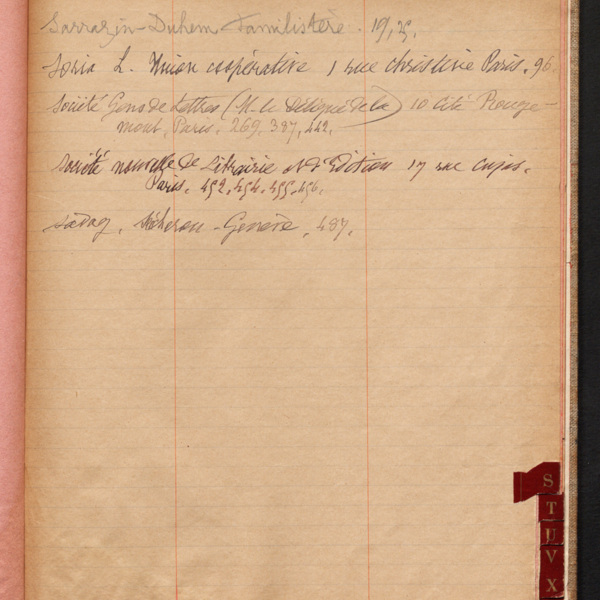 Sarrazin-Duhem Familistère. 19, 25.
Soria L. Union coopérative 1 rue Christine Paris. 96.
Société Gens de Lettres (M. le Délégué de la) 10 Cité Rouge-
mont, Paris. 269, 387, 442.
Société nouvelle de Librairie et d'Edition 17 rue Cujas.
Paris. 452, 454, 455, 456.
Sadag. Sécheron-Genève, 487.
S
T
U
V
X